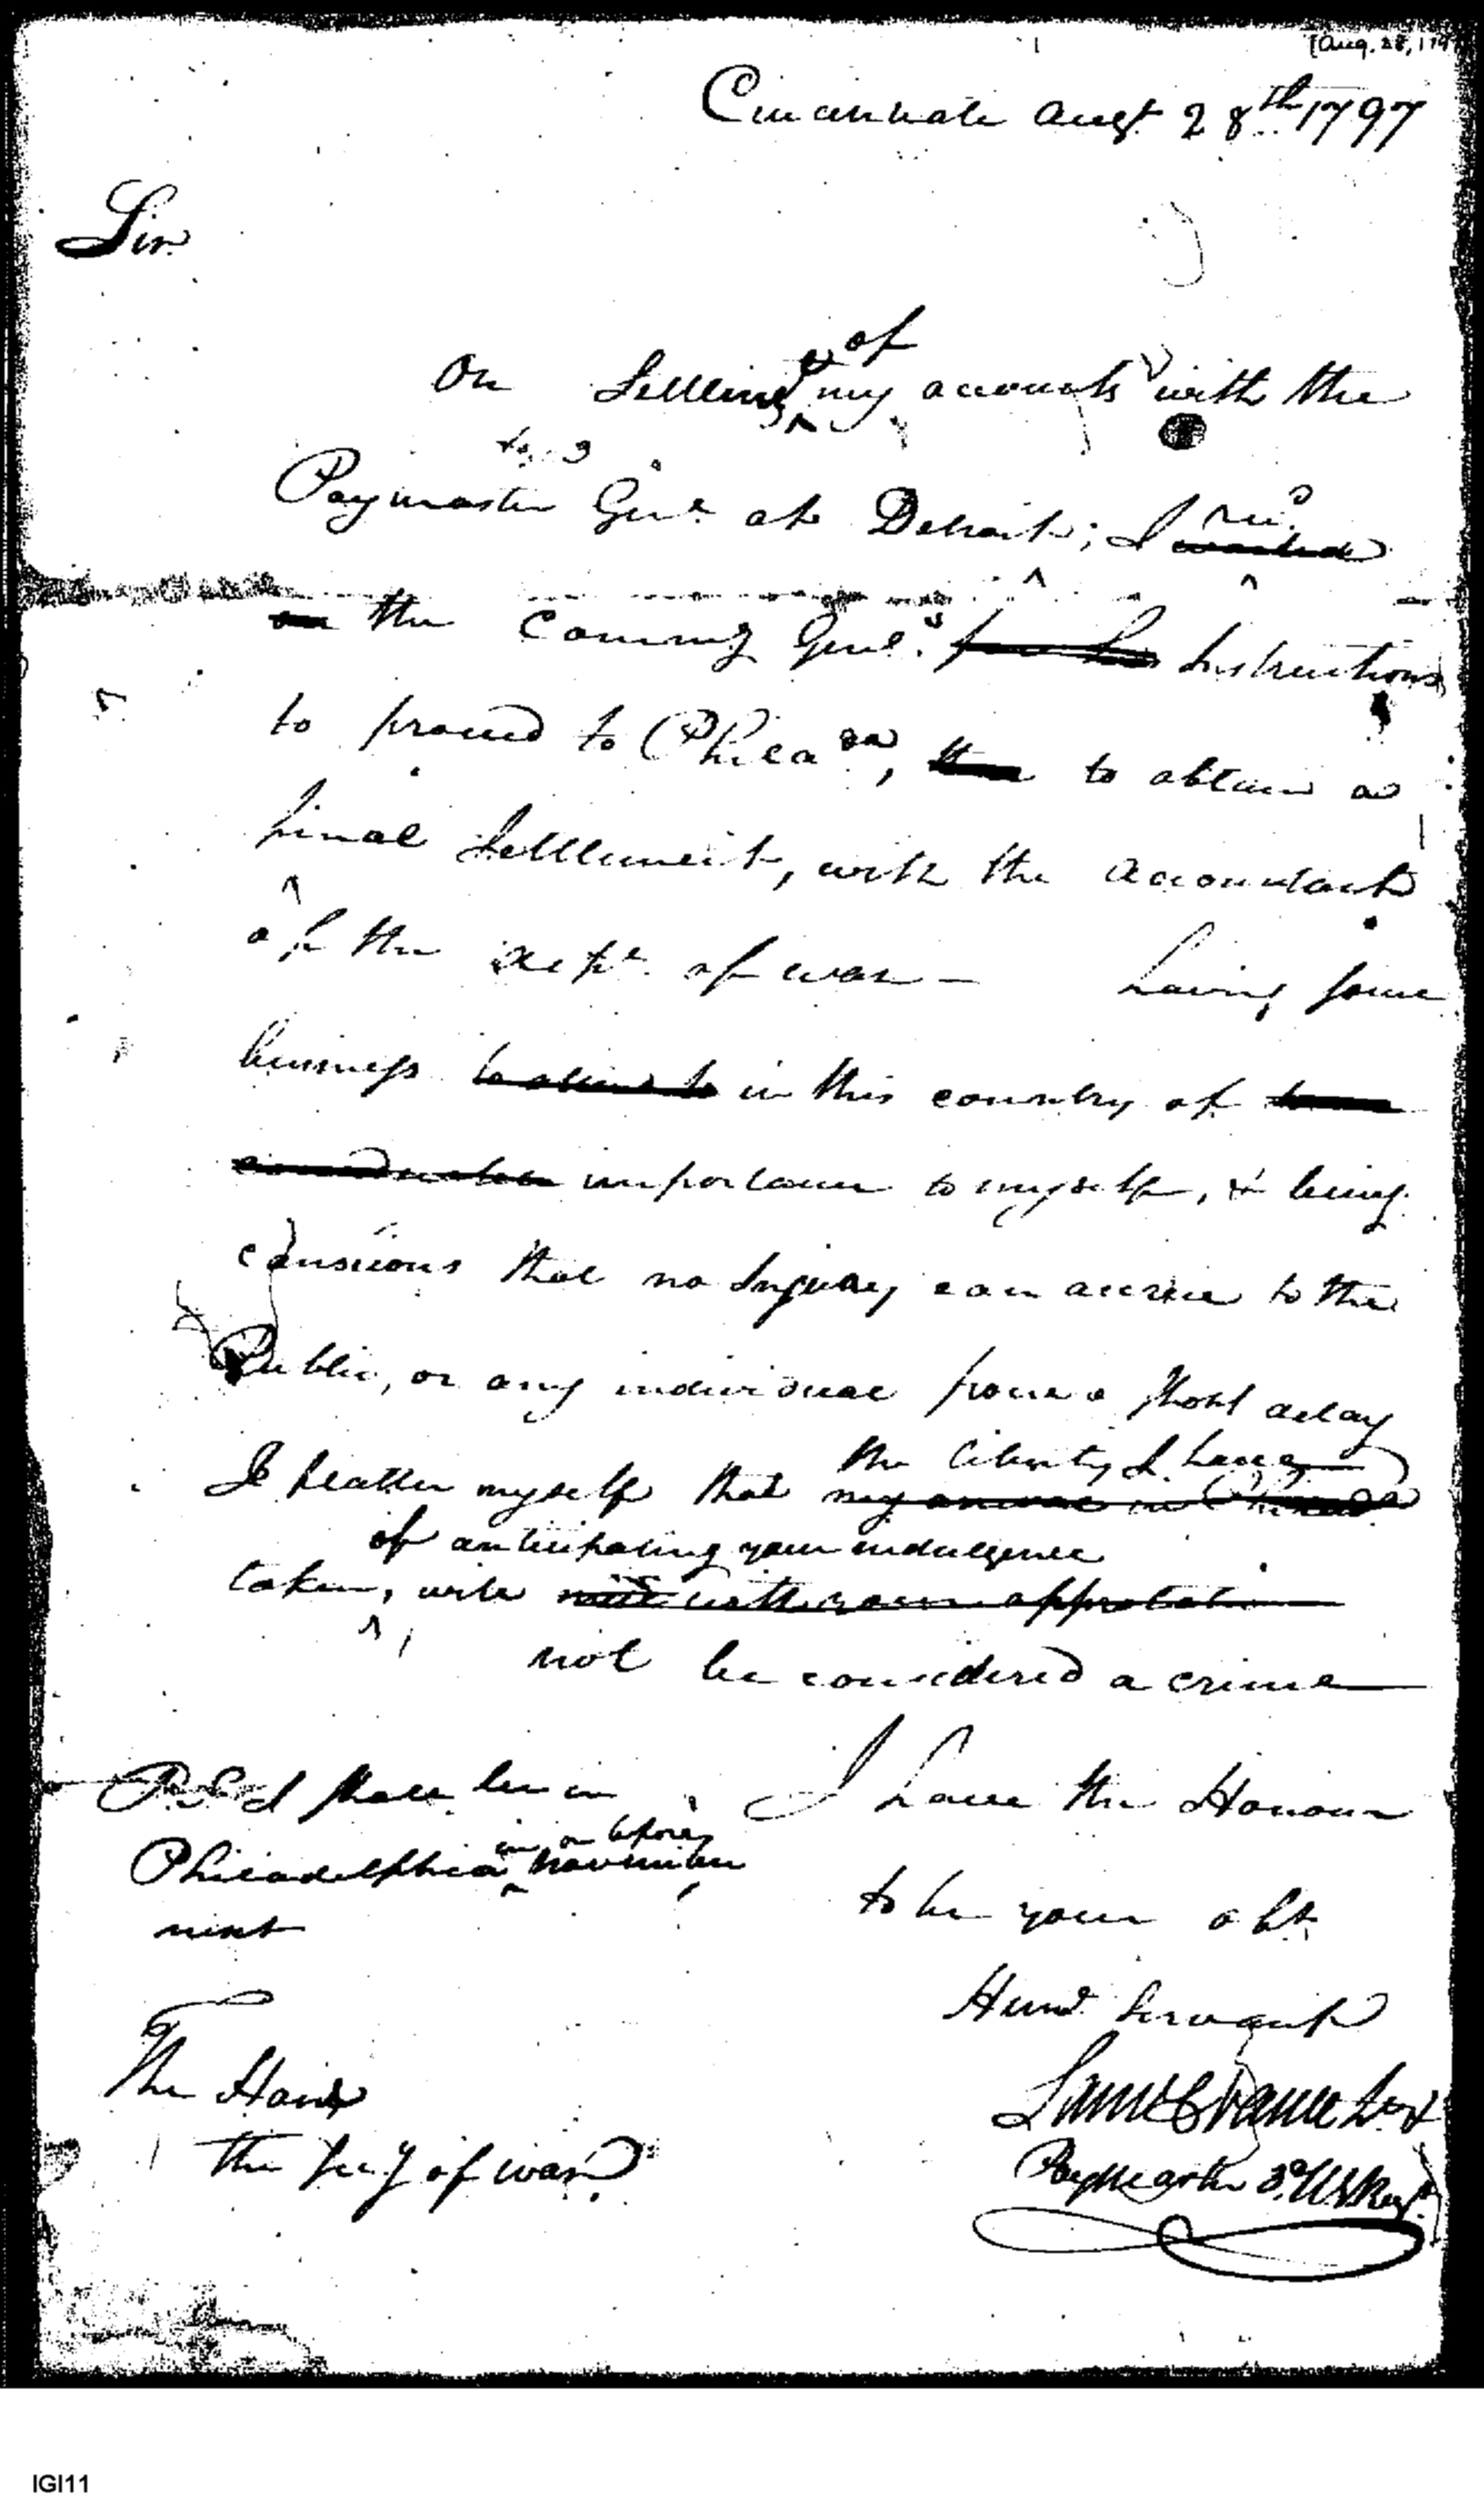 [Aug. 28, 179
Cincinnati Augt 28th 1797
Sir
of
On Settling my accounts with the
Paymaster Genl at Detroit; I recd
the Commg Genl.s Instructions
to proceed to Philada, to obtain a
final Settlement, with the accountant
of the dept of war — having some
business to attend to in this country of
considerable importance to myself, & being
conscious that no Injury can accrue to the
Public, or any individual from a short delay
the liberty I have
I flatter myself that my arrival in Philada
of anticipating your indulgence
taken, will meet with your approbation
not be considered a crime
I have the Honour
P.S. I shall be in
in or before
Philadelphia November
next
to be your obt
Hum'l Servant
Saml C Vance Lieut
Paymaster 3d US Regt
The Honl
the Secy of war
IGI11